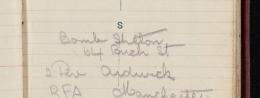 S
Bomb Shotton
64 Birch St
Ardwick
RFA Manchester